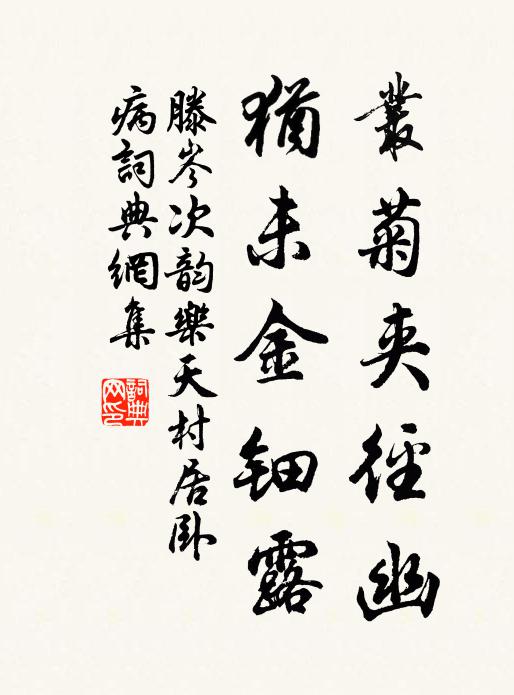 叢菊夾徑幽
猶未金鈿露
滕岑次韵樂天村居卧
病詞典網集
詞典网印